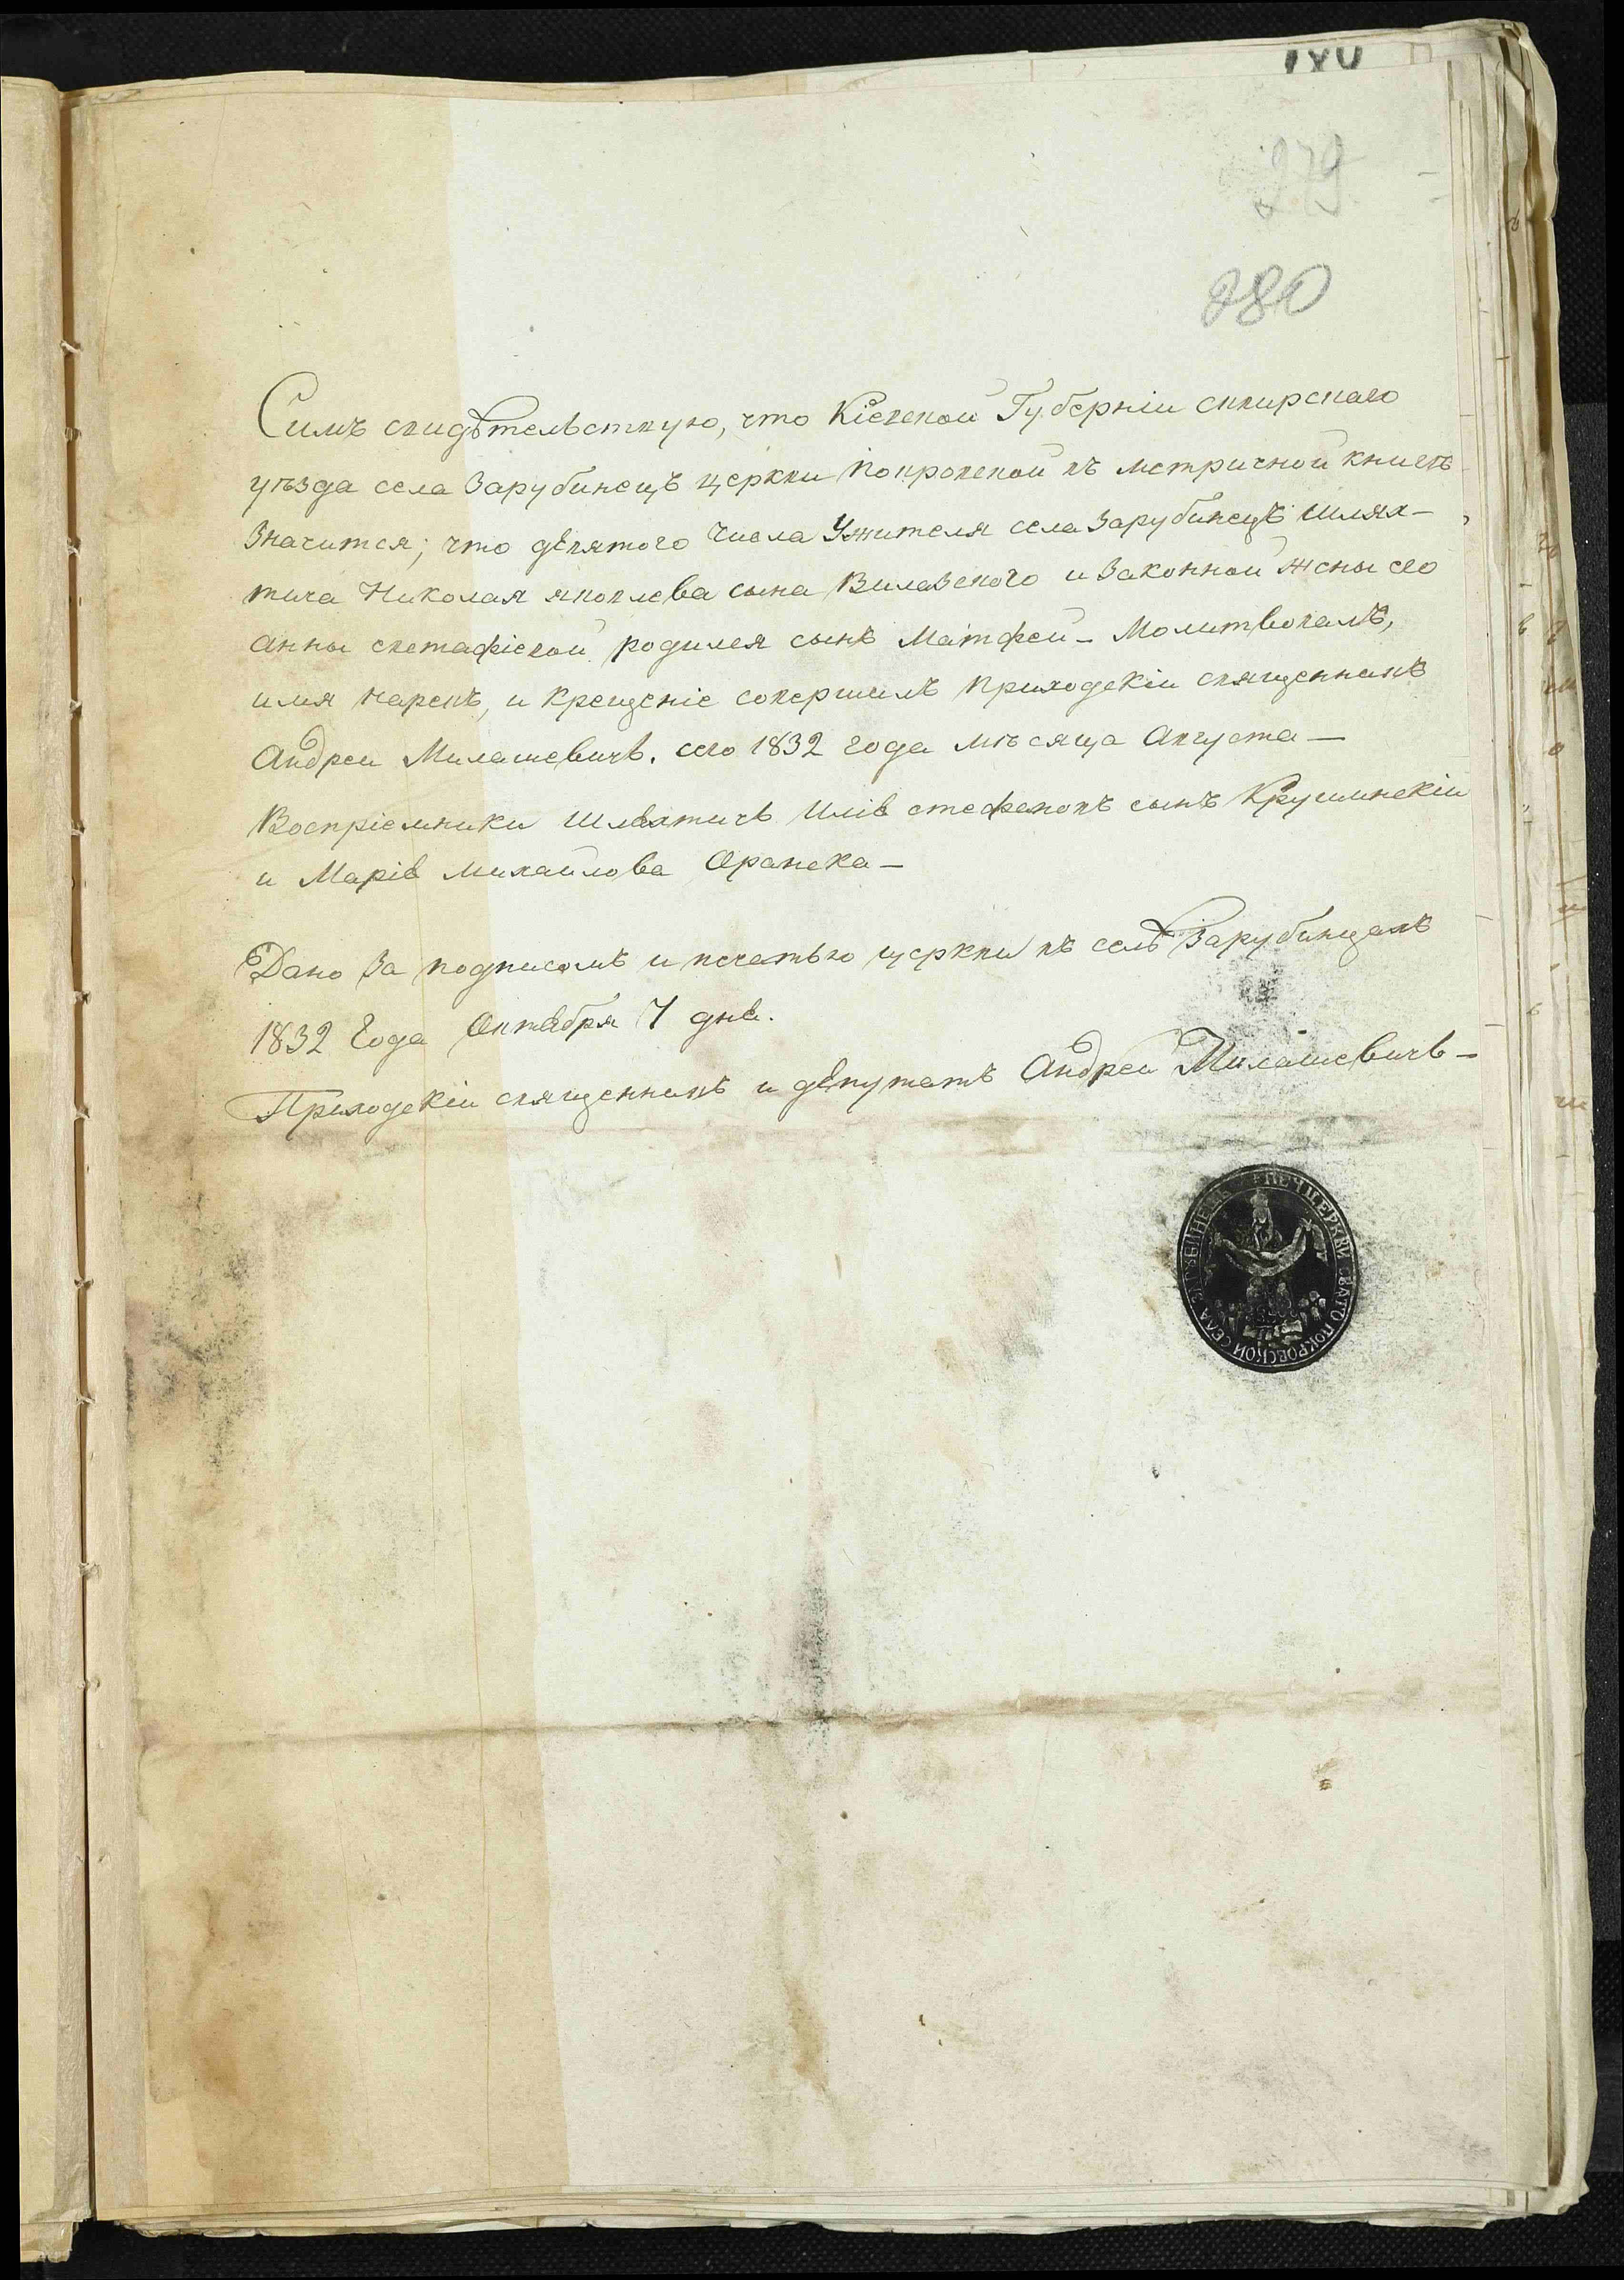 279
280
Симъ свидѣтельствую, что Кіевской Губерніи сквирскаго
уѣзда села Зарубинецъ церкви покровской въ метричной книгѣ
Значится; что девятого Числа Ужителя села Зарубинецъ шлях-
тича Николая яковлева сына и Законной жены его
анны родился сынъ Матфей - Молитвовалъ,
имя нарекъ, и крещеніе совершилъ приходскіи священникъ
андреи Милашевичъ. сего 1832 года мѣсяца августа —
Воспріемники Шляхтичъ Илія стефановъ сынъ Крушинскіи
и Марія михаилова —
Дано За подписомъ и печатью церкви въ селѣ Зарубинцахъ
1832 Года Октября 7 дня.
Приходскіи священникъ и депутатъ Андреи Милашевичъ —
ПЕЧ ЦЕРКВИ СВАТО ПОКРОВСКОИ СЕЛА ЗАРУБИНЕЦЪ